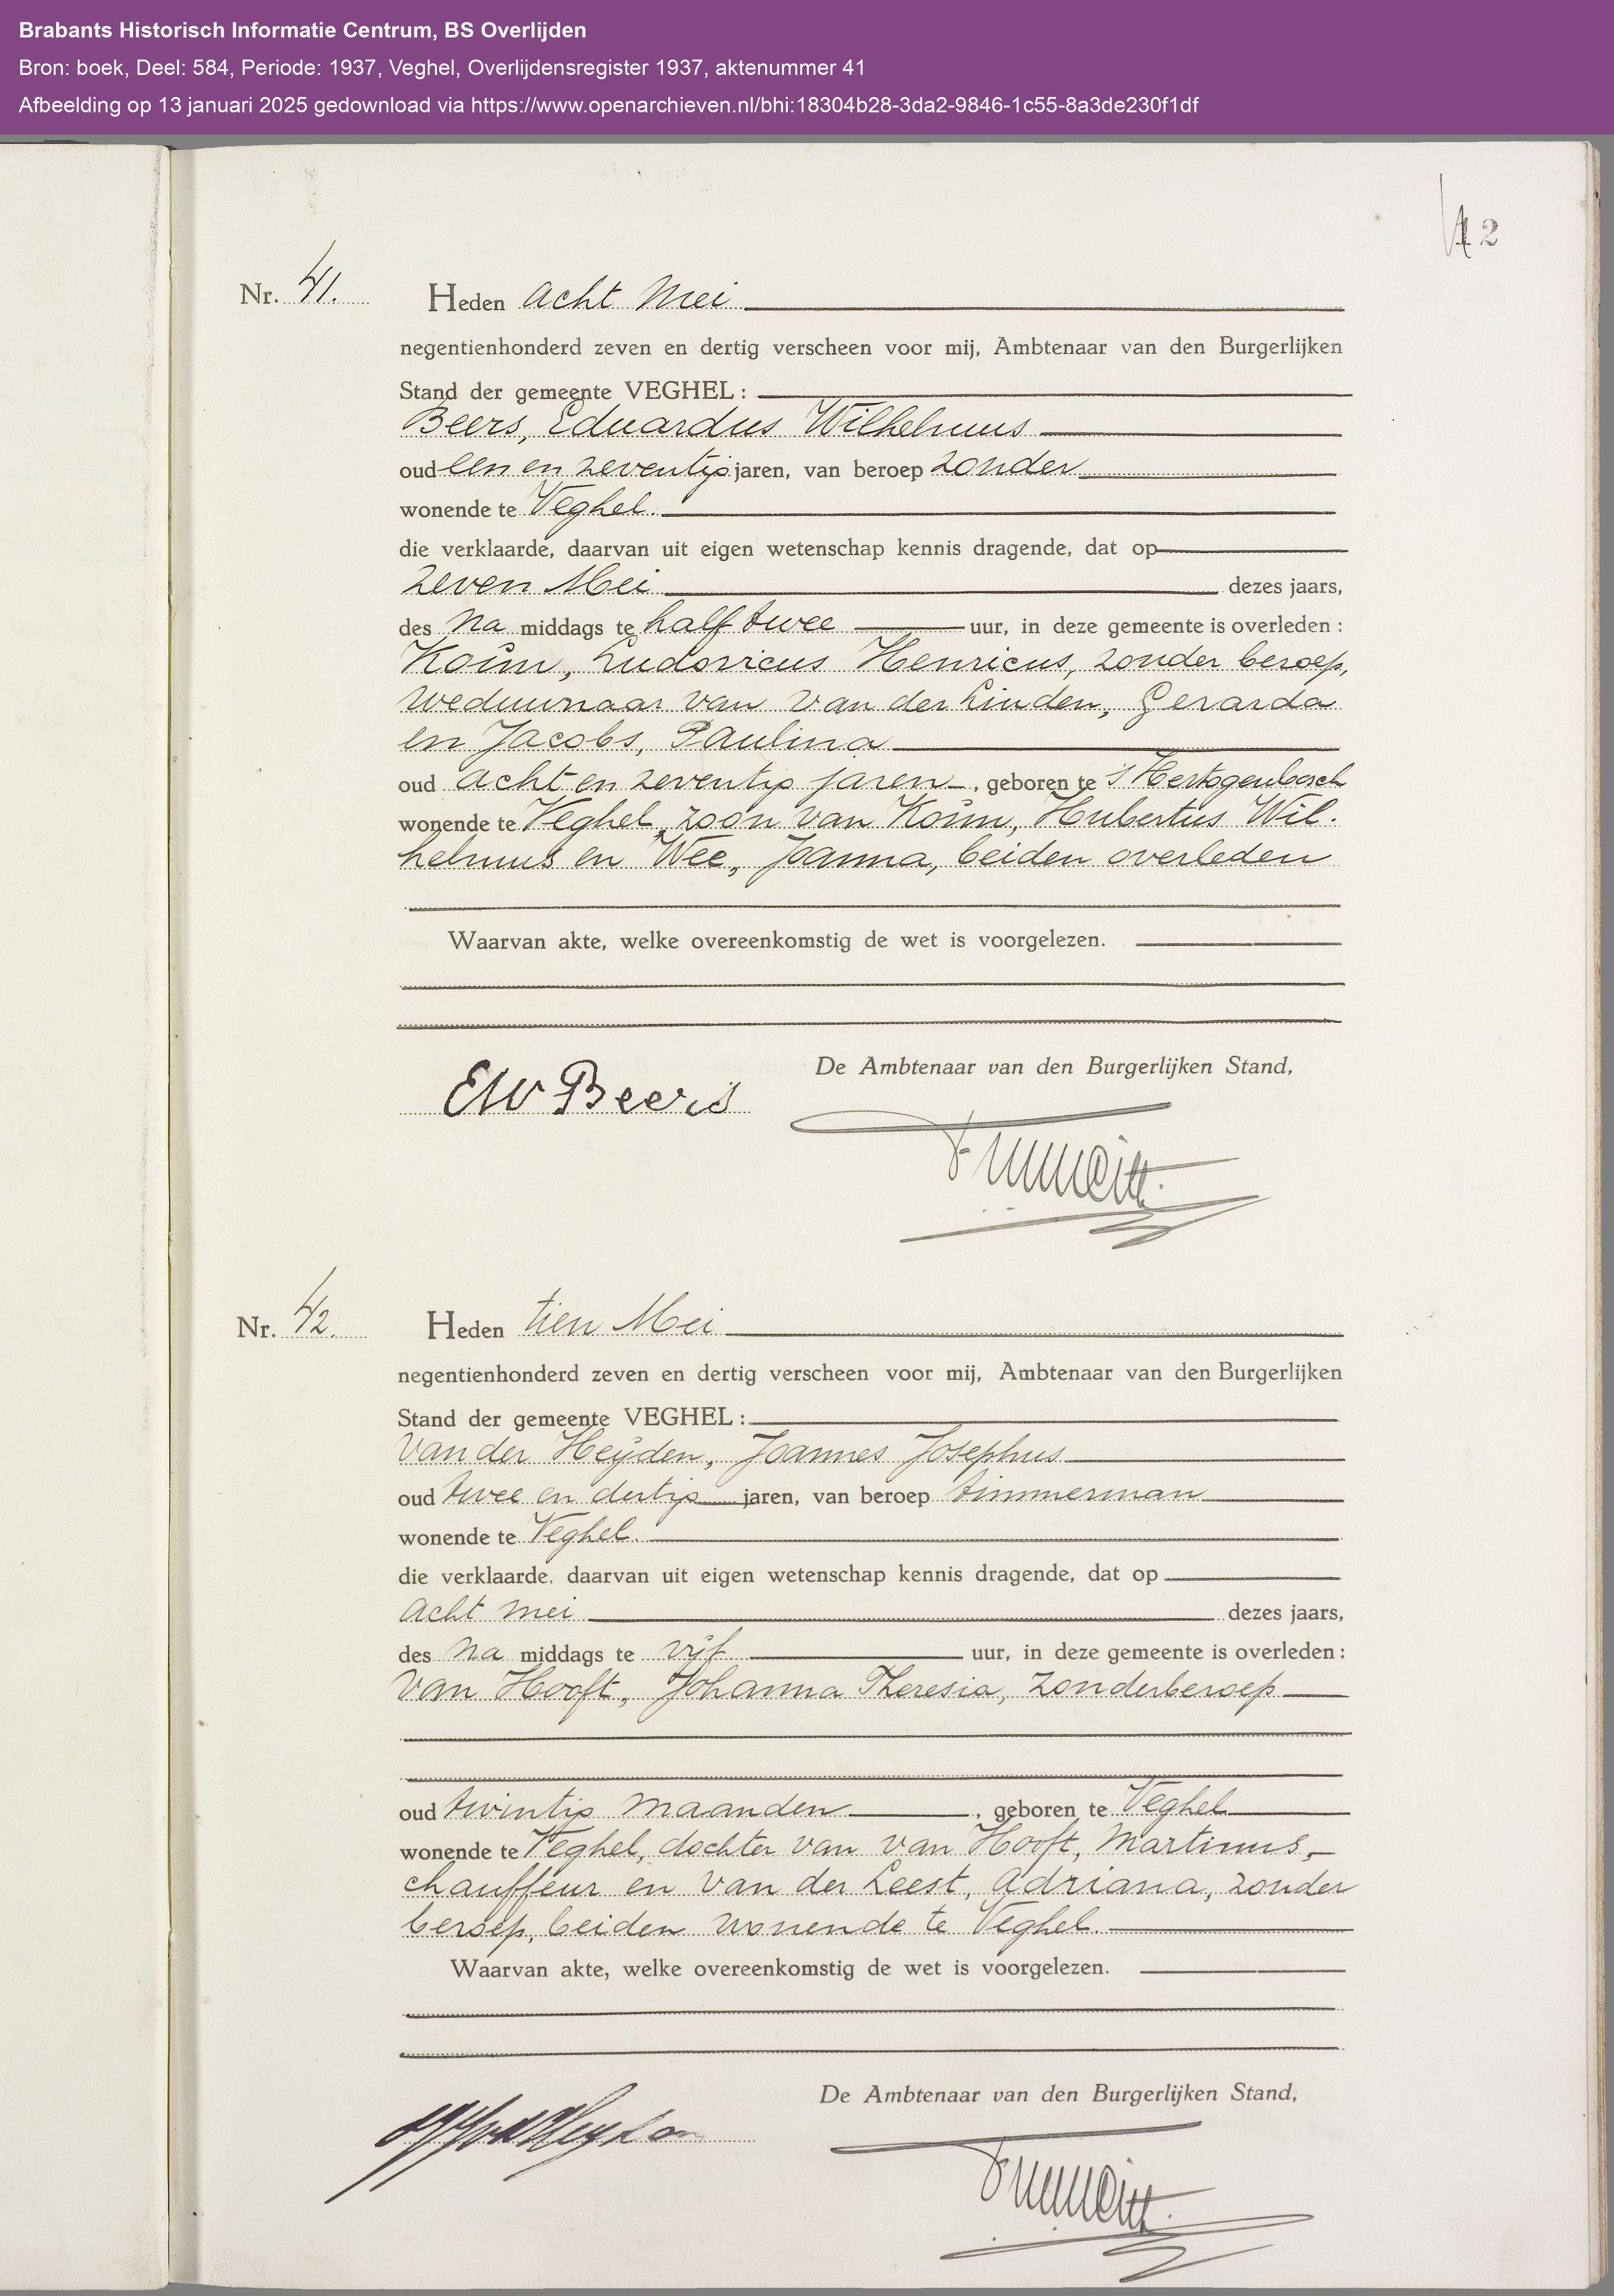 Brabants Historisch Informatie Centrum, BS Overlijden
Bron: boek, Deel: 584, Periode: 1937, Veghel, Overlijdensregister 1937, aktenummer 41
Afbeelding op 13 januari 2025 gedownload via https://www.openarchieven.nl/bhi:18304b28-3da2-9846-1c55-8a3de230f1df
2
Nr. 41. Heden acht Mei
negentienhonderd zeven en dertig verscheen voor mij, Ambtenaar van den Burgerlijken
Stand der gemeente VEGHEL:
Beers, Eduardus Wilhelmus
oud een en zeventig jaren, van beroep zonder
wonende te Veghel.
die verklaarde, daarvan uit eigen wetenschap kennis dragende, dat op
zeven Mei dezes jaars,
des na middags te half twee uur, in deze gemeente is overleden:
Ludovicus Henricus, zonder beroep,
weduwnaar van van der Linden, Gerarda
en Jacobs, Paulina
oud acht en zeventig jaren, geboren te 's Hertogenbosch
wonende te Veghel, zoon van Hubertus Wil-
helmus en Wee, Joanna, beiden overleden
Waarvan akte, welke overeenkomstig de wet is voorgelezen.
De Ambtenaar van den Burgerlijken Stand,
EW Beers
Nr. 42. Heden tien Mei
negentienhonderd zeven en dertig verscheen voor mij, Ambtenaar van den Burgerlijken
Stand der gemeente VEGHEL:
Van der Heijden, Joannes Josephus
oud twee en dertig jaren, van beroep timmerman
wonende te Veghel
die verklaarde, daarvan uit eigen wetenschap kennis dragende, dat op
acht mei dezes jaars,
des na middags te vijf uur, in deze gemeente is overleden:
Van Hooft, Johanna Theresia, zonder beroep
oud twintig maanden, geboren te Veghel
wonende te Veghel, dochter van van Hooft, Martinus,
chauffeur en van der Leest, Adriana, zonder
beroep, beiden wonende te Veghel.
Waarvan akte, welke overeenkomstig de wet is voorgelezen.
De Ambtenaar van den Burgerlijken Stand,